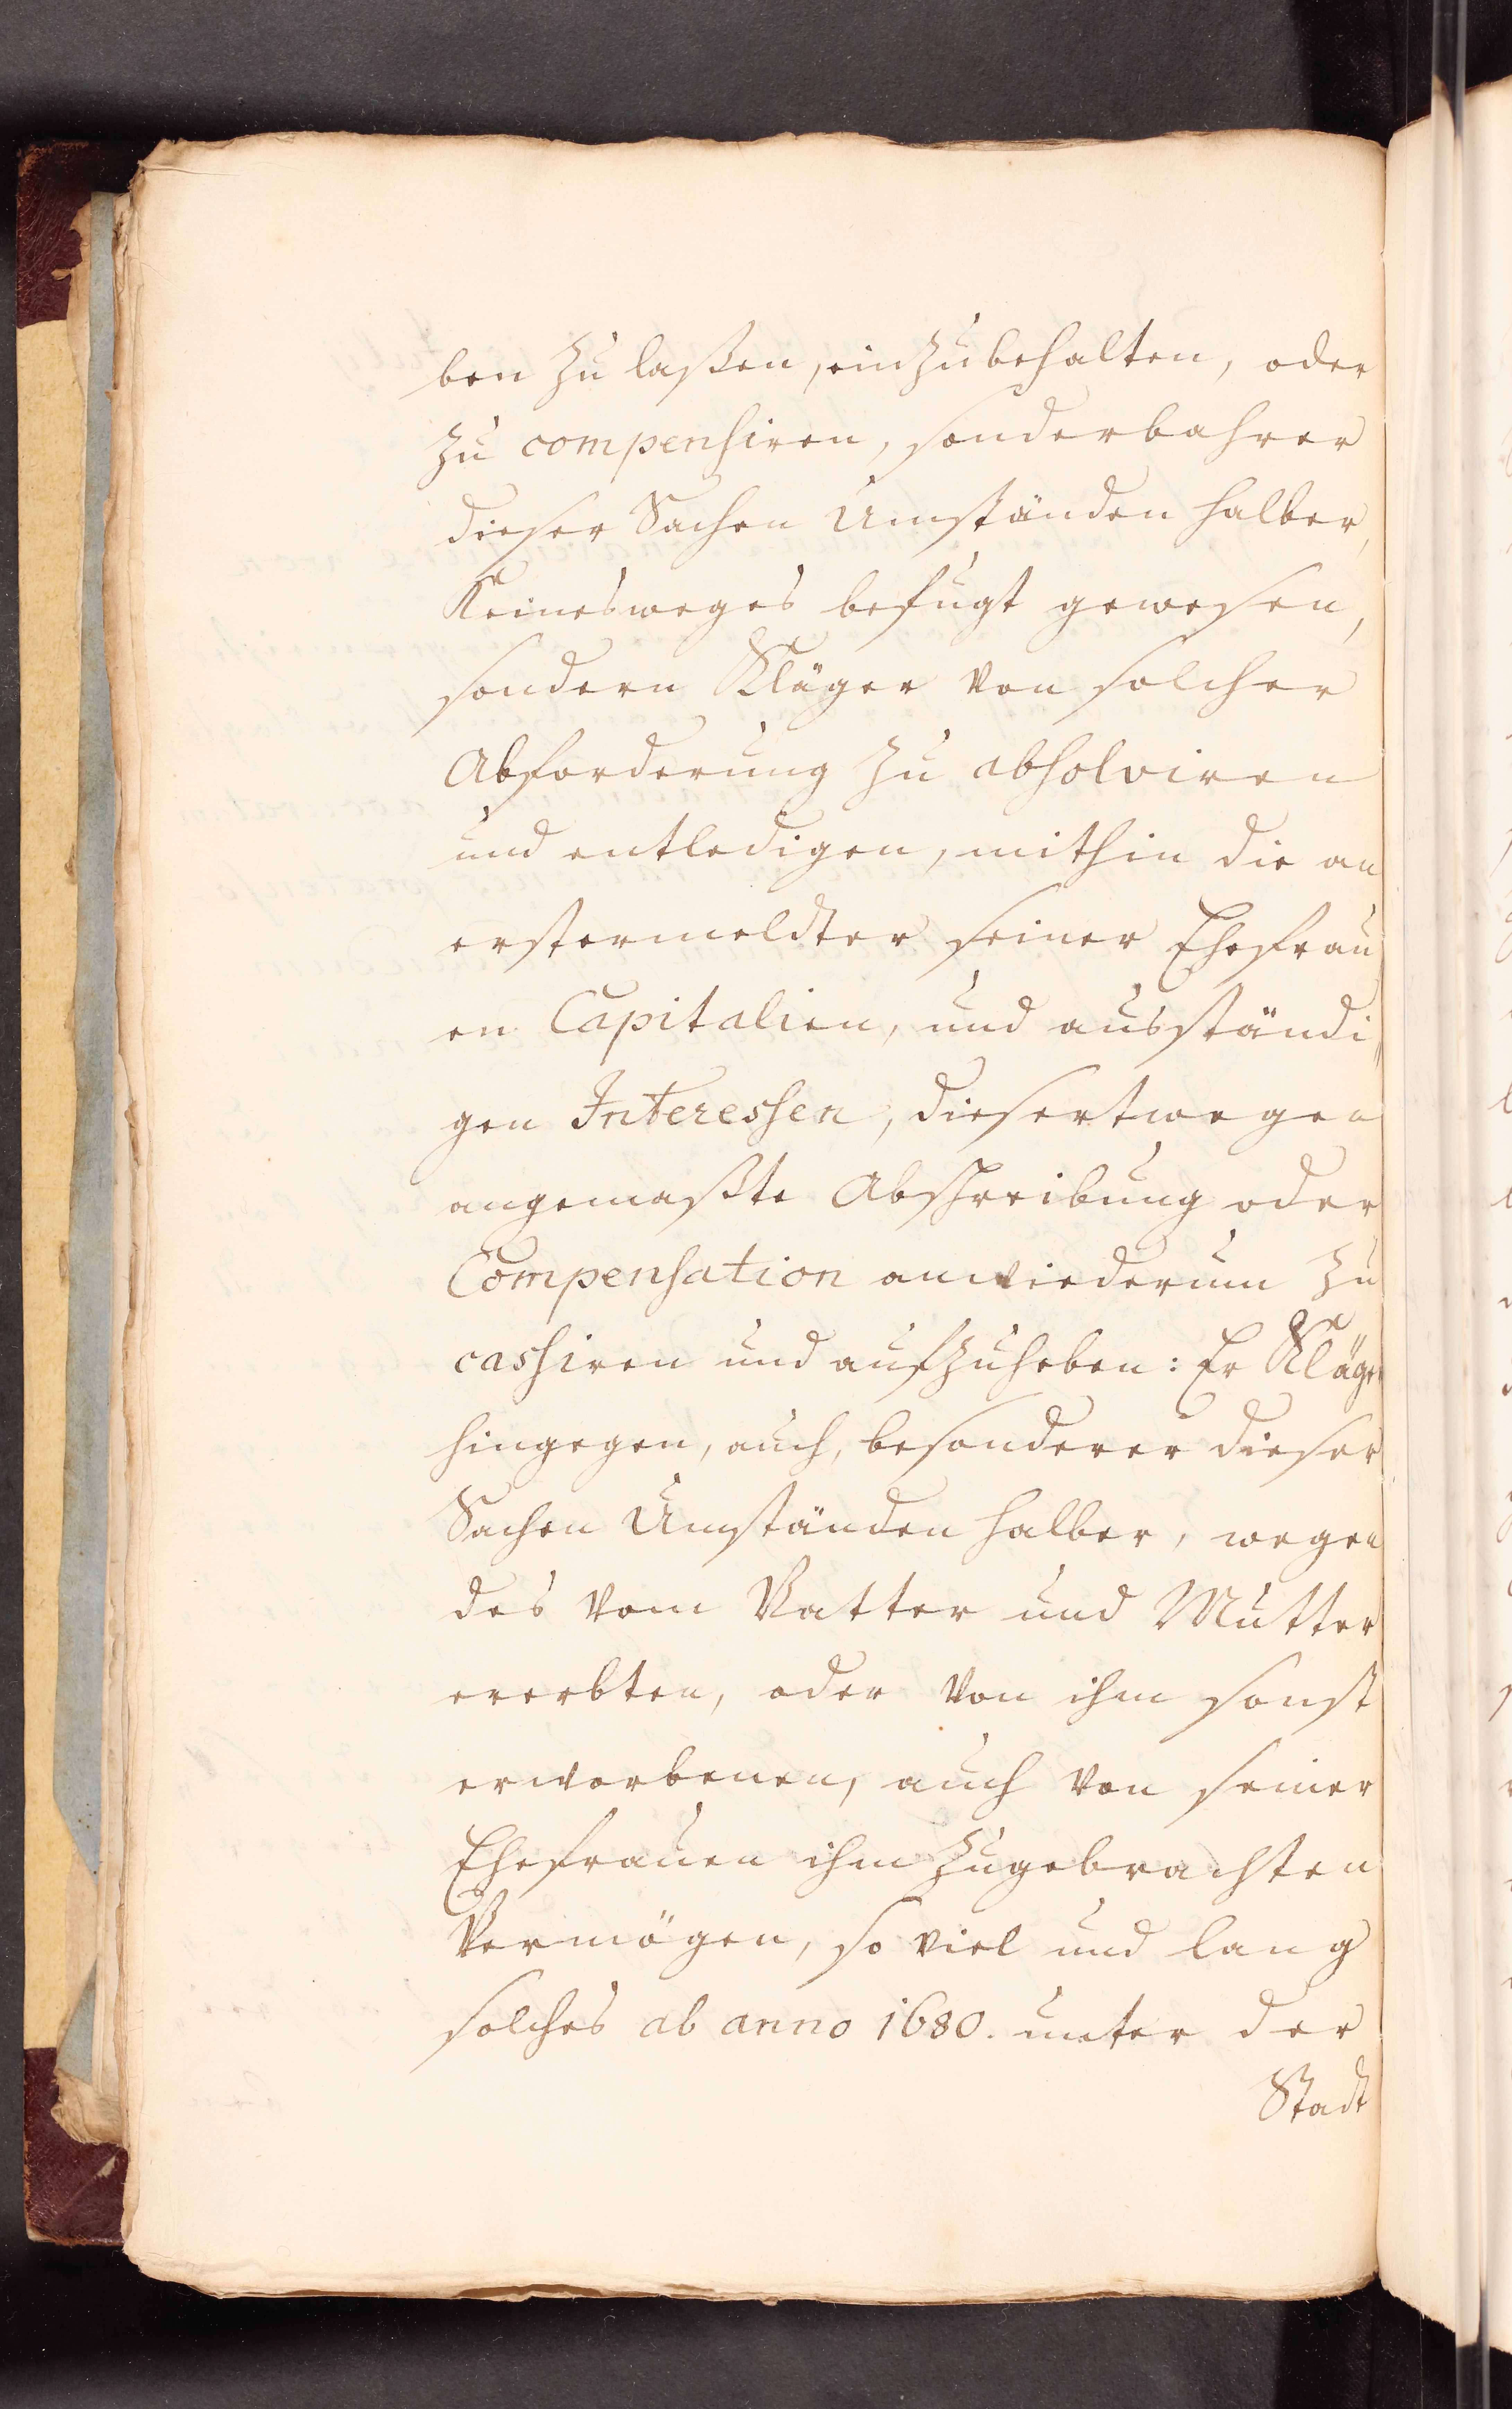 ben zu laßen, einzubehalten, oder
zu compensiren, sonderbahrer
dieser Sachen Umständen halber,
Keinesweges befugt gewesen,
sondern Kläger von solcher
Abforderung zu absolviren
und entledigen, mithin die an
erstermeldter seiner Ehefrau
en Capitalien, und ausständi,
gen Interessen, diesertwegen
angemaßte Abschreibung oder
Compensation anwiederum zu
cassiren und aufzuheben: Er Kläger
hingegen, auch, besonderer dieser
Sachen Umständen halber, wegen
des vom Vatter und Mutter
ererbten, oder von ihm sonst
erworbenen, auch von seiner
Ehefrauen ihm zugebrachten
Vermögen, so viel und lang
solches ab anno 1680. unter der
Stadt